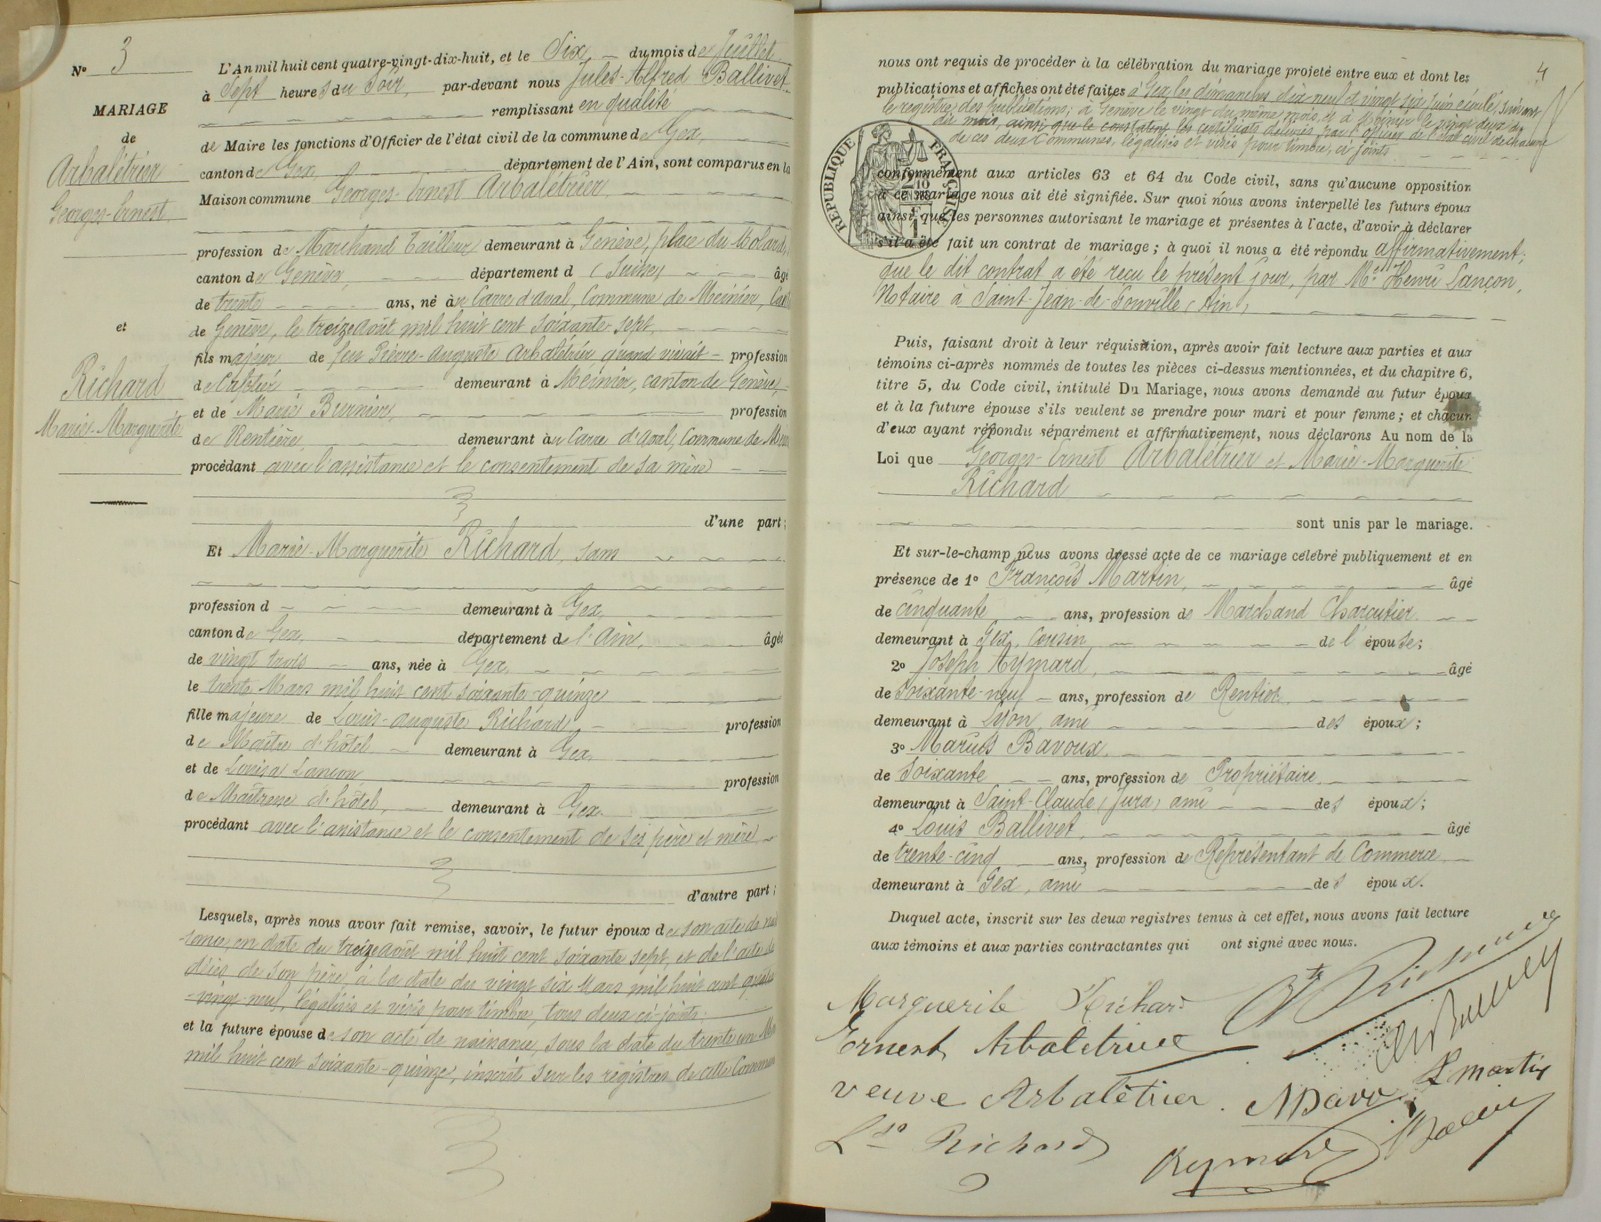 N° 3
MARIAGE
de
Arbalétrier
Georges-Ernest
et
Richard
Marie-Marguerite
L'An mil huit cent quatre-vingt-dix-huit, et le Six du mois de Juillet
à Sept heures du Soir, par-devant nous Jules-Alfred Ballivet
remplissant en qualité
de Maire les fonctions d'Officier de l'état civil de la commune de Gex,
canton de Gex département de l'Ain, sont comparus en la
Maison commune Georges-Ernest Arbalétrier
profession de Marchand Tailleur demeurant à Genève, place du Molard,
canton de Genève, département d (Suisse) âgé
de trente ans, né à Carre d'aval, Commune de Meinier, Canton
de Genève, le treize août mil huit cent soixante sept,
fils majeur de feu Pierre-Auguste Arbalétrier quand vivait profession
de demeurant à Meinier, canton de Genève,
et de Marie Burnier, profession
de Rentière demeurant à Carre d'aval, Commune de
procédant avec l'assistance et le consentement de sa mère
d'une part;
Et Marie-Marguerite Richard, sans
profession d demeurant à Gex,
canton de Gex, département de l'Ain, âgée
de vingt trois ans, née à Gex,
le trente Mars mil huit cent soixante-quinze
fille majeure de Louis-Auguste Richard, profession
de Maître d'hôtel demeurant à Gex,
et de Louisa Lançon profession
de Maîtresse d'hôtel, demeurant à Gex
procédant avec l'assistance et le consentement de ses père et mère
d'autre part;
Lesquels, après nous avoir fait remise, savoir, le futur époux de son acte de nais
sance, en date du treize août mil huit cent soixante sept, et de l'acte de
décès de son père, à la date du vingt six Mars mil huit cent quatre
-vingt-neuf, légalisés et visés pour timbre, tous deux ci-joints.
et la future épouse de son acte de naissance, sous la date du trente un Mars
mil huit cent soixante-quinze, inscrit sur les registres de cette Commune
4
nous ont requis de procéder à la célébration du mariage projeté entre eux et dont les
publications et affiches ont été faites à Gex les dimanches dix-neuf et vingt six juin écoulé, suivant
le registre des publications; à Genève le vingt du même mois et à Meinier le vingt deux du
dit mois, ainsi que le constatent les certificats délivrés par l'officier de l'état civil de chacune
de ces deux Communes, légalisés et visés pour timbre, ci joints.
RÉPUBLIQUE FRANÇAISE
conformément aux articles 63 et 64 du Code civil, sans qu'aucune opposition
à ce mariage nous ait été signifiée. Sur quoi nous avons interpellé les futurs époux
ainsi que les personnes autorisant le mariage et présentes à l'acte, d'avoir à déclarer
s'il a été fait un contrat de mariage; à quoi il nous a été répondu affirmativement;
que le dit contrat a été reçu le présent jour, par Me Henri Lançon,
Notaire à Saint-Jean-de-Gonville (Ain),
Puis, faisant droit à leur réquisition, après avoir fait lecture aux parties et aux
témoins ci-après nommés de toutes les pièces ci-dessus mentionnées, et du chapitre 6,
titre 5, du Code civil, intitulé Du Mariage, nous avons demandé au futur époux
et à la future épouse s'ils veulent se prendre pour mari et pour femme; et chacun
d'eux ayant répondu séparément et affirmativement, nous déclarons Au nom de la
Loi que Georges-Ernest Arbalétrier et Marie-Marguerite
Richard
sont unis par le mariage.
Et sur-le-champ nous avons dressé acte de ce mariage célébré publiquement et en
présence de 1° François Martin, âgé
de cinquante ans, profession de Marchand Charcutier
demeurant à Gex, Cousin de l'épouse;
2° Joseph Aymard, âgé
de Soixante-neuf ans, profession de Rentier
demeurant à Lyon, ami des époux;
3° Marius Bavoux,
de Soixante ans, profession de Propriétaire
demeurant à Saint-Claude (Jura) ami des époux;
4° Louis Ballivet, âgé
de trente-cinq ans, profession de Représentant de Commerce
demeurant à Gex, ami des époux.
Duquel acte, inscrit sur les deux registres tenus à cet effet, nous avons fait lecture
aux témoins et aux parties contractantes qui ont signé avec nous.
Marguerite Richard
Ernest Arbaletrier
veuve Arbalétrier
F. Martin
Ls Richard
Aymard